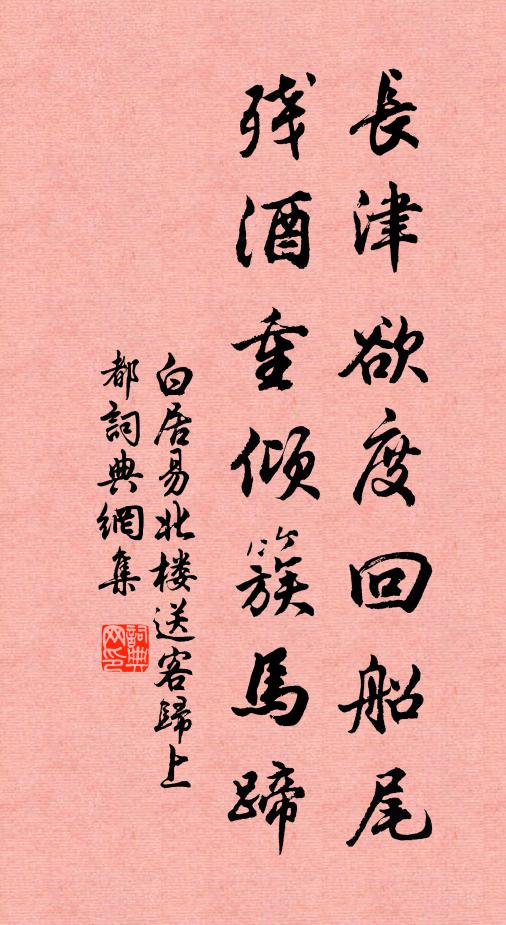 長津欲度回船尾
残酒重傾簇馬蹄
白居易北楼送客歸上
都詞典網集
詞典
网印